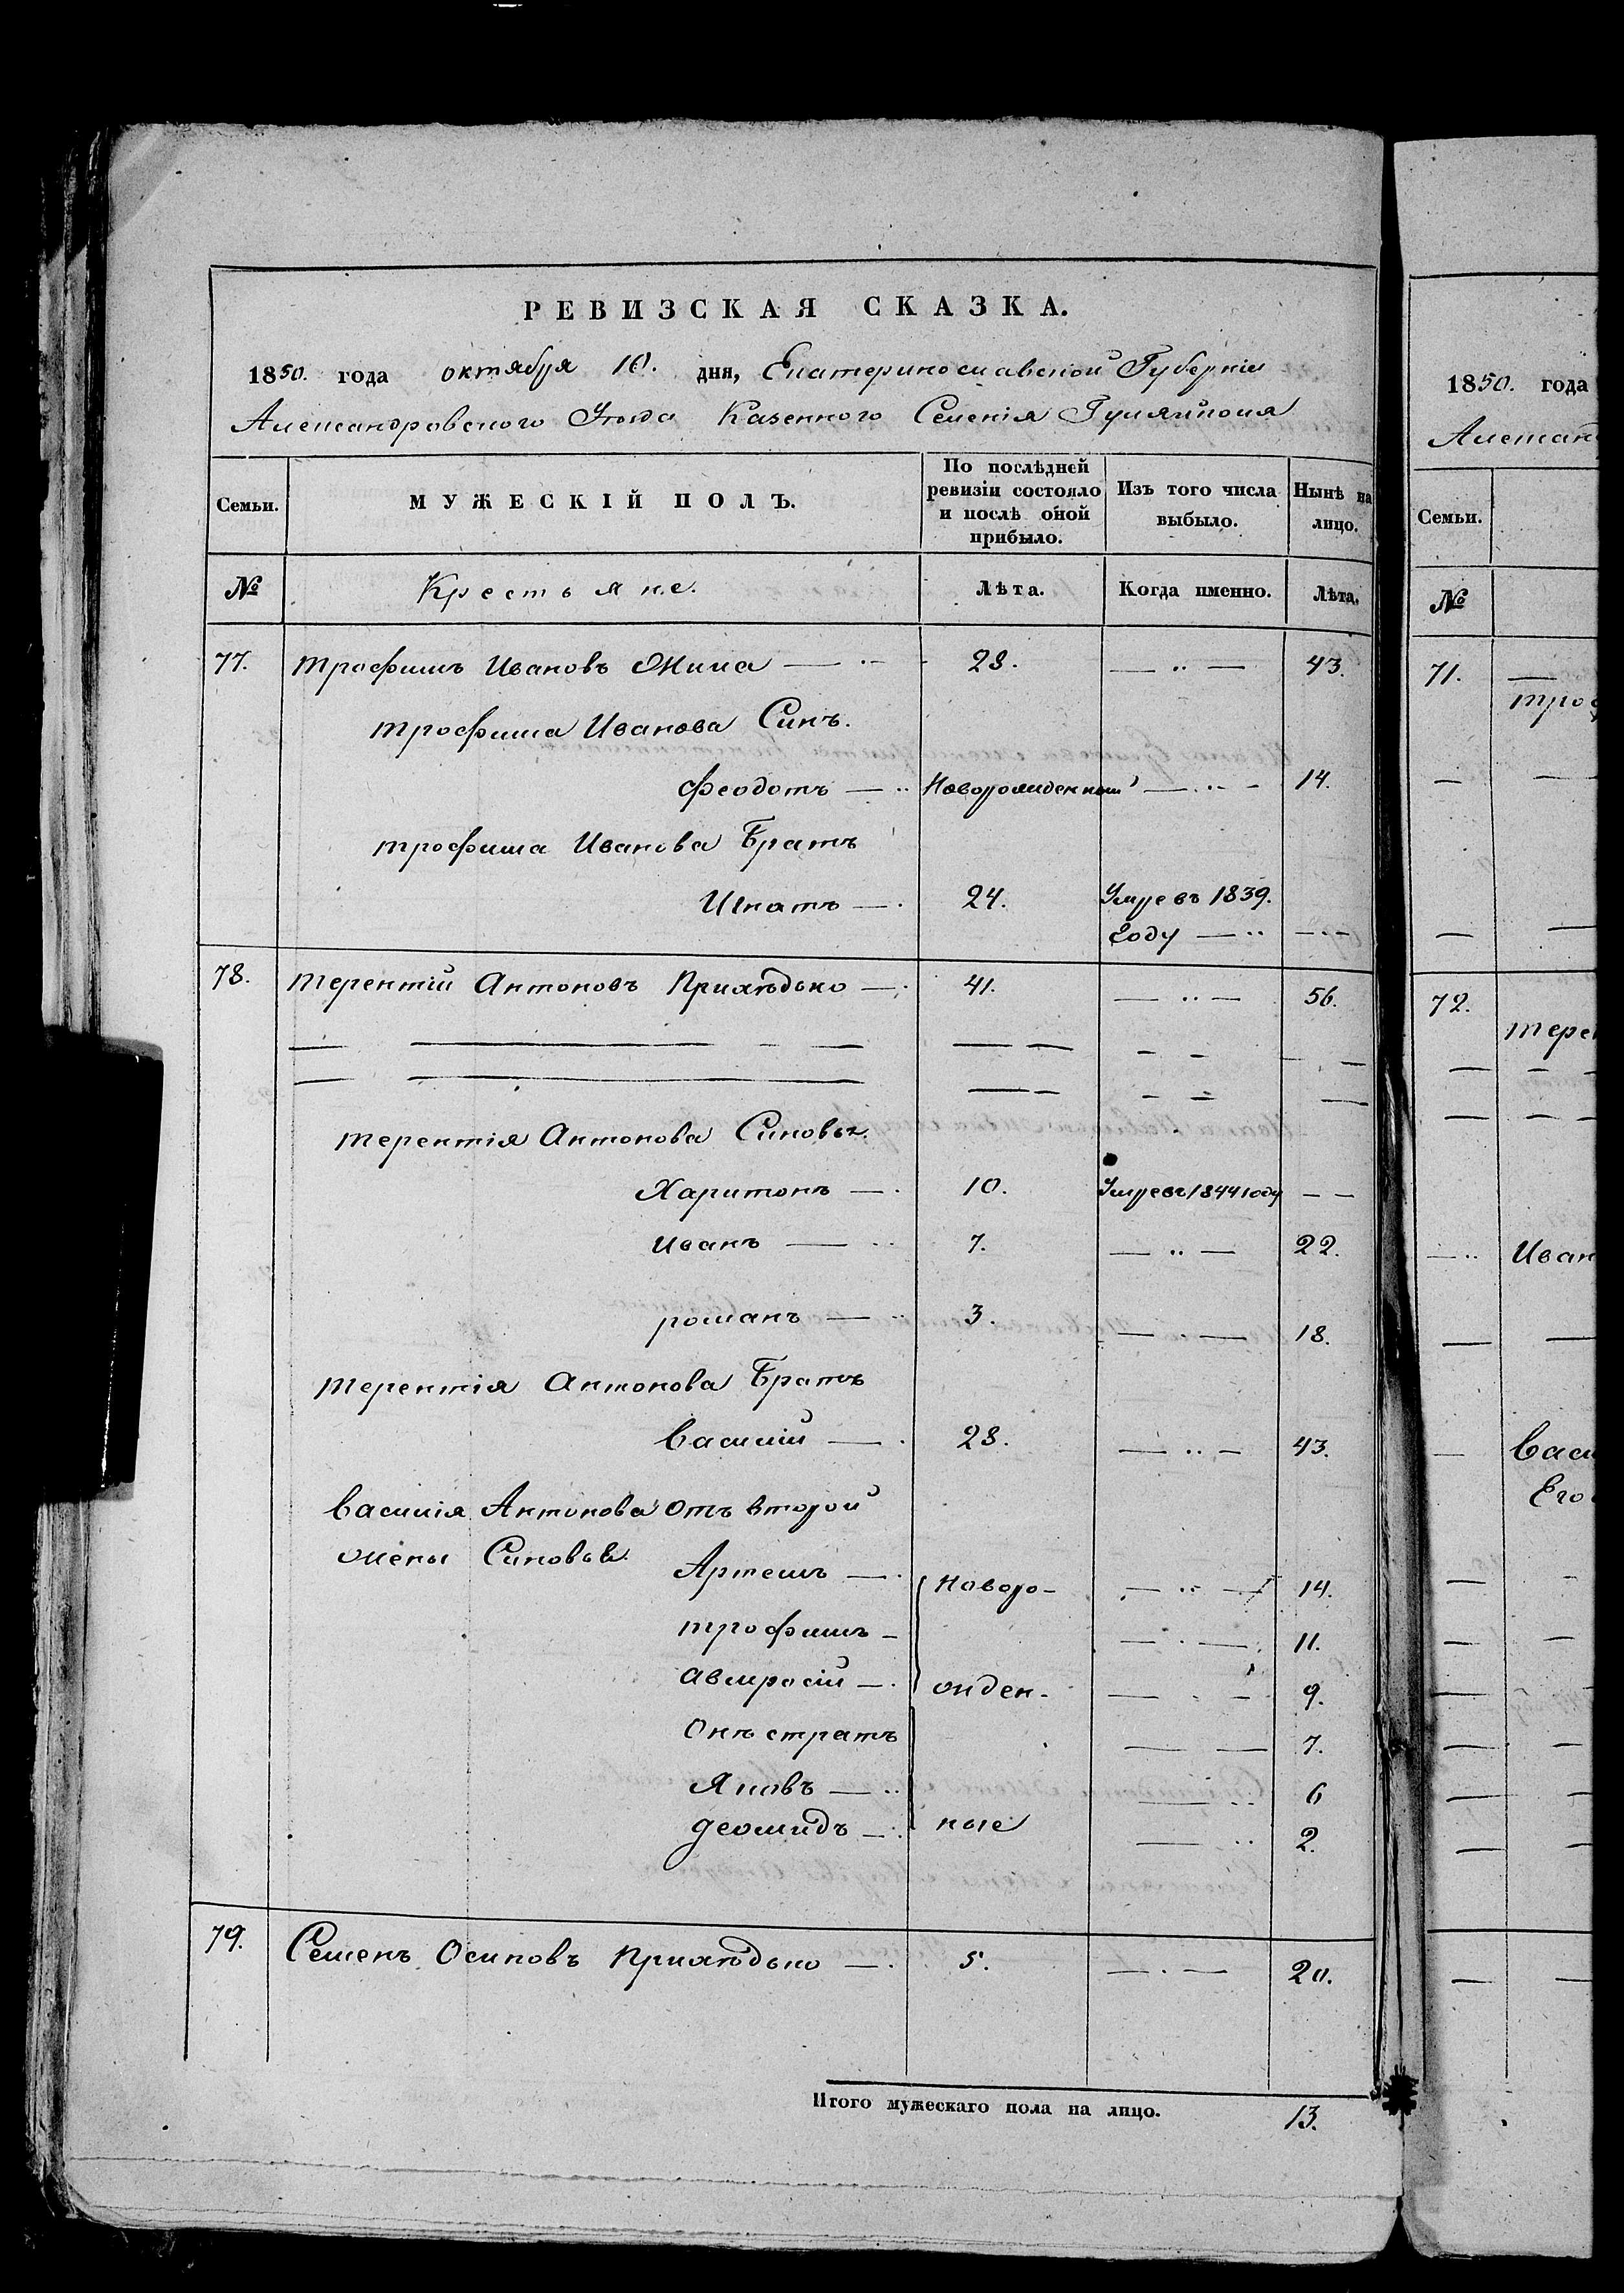 РЕВИЗСКАЯ СКАЗКА.
1850. года октября 10. дня, Екатеринославской Губерніи
Александровского Уезда Казенного Селенія Гуляйполя
Семьи. МУЖЕСКІЙ ПОЛЪ. По послѣдней ревизіи состояло и послѣ оной прибыло. Изъ того числа выбыло. Нынѣ на лицо.
№ Крестьяне. Лѣта. Когда именно. Лѣта.
77. трофимъ Ивановъ Жила — ·· — 28. — ·· — 43.
трофима Иванова Синъ.
феодотъ — ·· Новорожденный — ·· — 14.
трофима Иванова Братъ
Игнатъ — · 24. Умре въ 1839.
Году — ·· — · —
78. терентій Антоновъ Прихѣдько — · 41. — ·· — 56.
терентія Антонова Синовья.
Харитонъ — · 10. Умре въ 1844 году — —
Иванъ — ·· 7. — ·· — 22.
романъ — ·· 3. — ·· — 18.
терентія Антонова Братъ
Василій — · 28. — ·· — 43.
Василія Антонова отъ второй
жены Синовья. Артемъ — · Новоро- — ·· — 14.
трофимъ — — · — 11.
Авмросій — · жден- — · — 9.
Онѣстратъ — — 7.
Яковъ — ·· — ·· 6
Деомидъ — · ные — ·· 2.
79. Семенъ Осиповъ Прихѣдько — · 5. — · — 20.
Итого мужескаго пола на лицо. 13.
1850. года
Александ
Семьи.
№
71. —
троф
72.
терен
Иван
Васи
Его